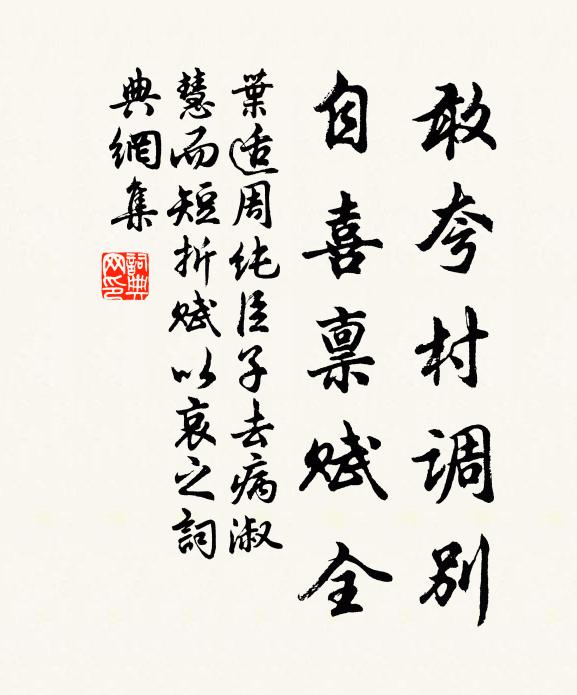 敢夸村调别
自喜禀赋全
葉适周纯臣子去病淑
慧而短折赋以哀之詞
典網集
詞典网印